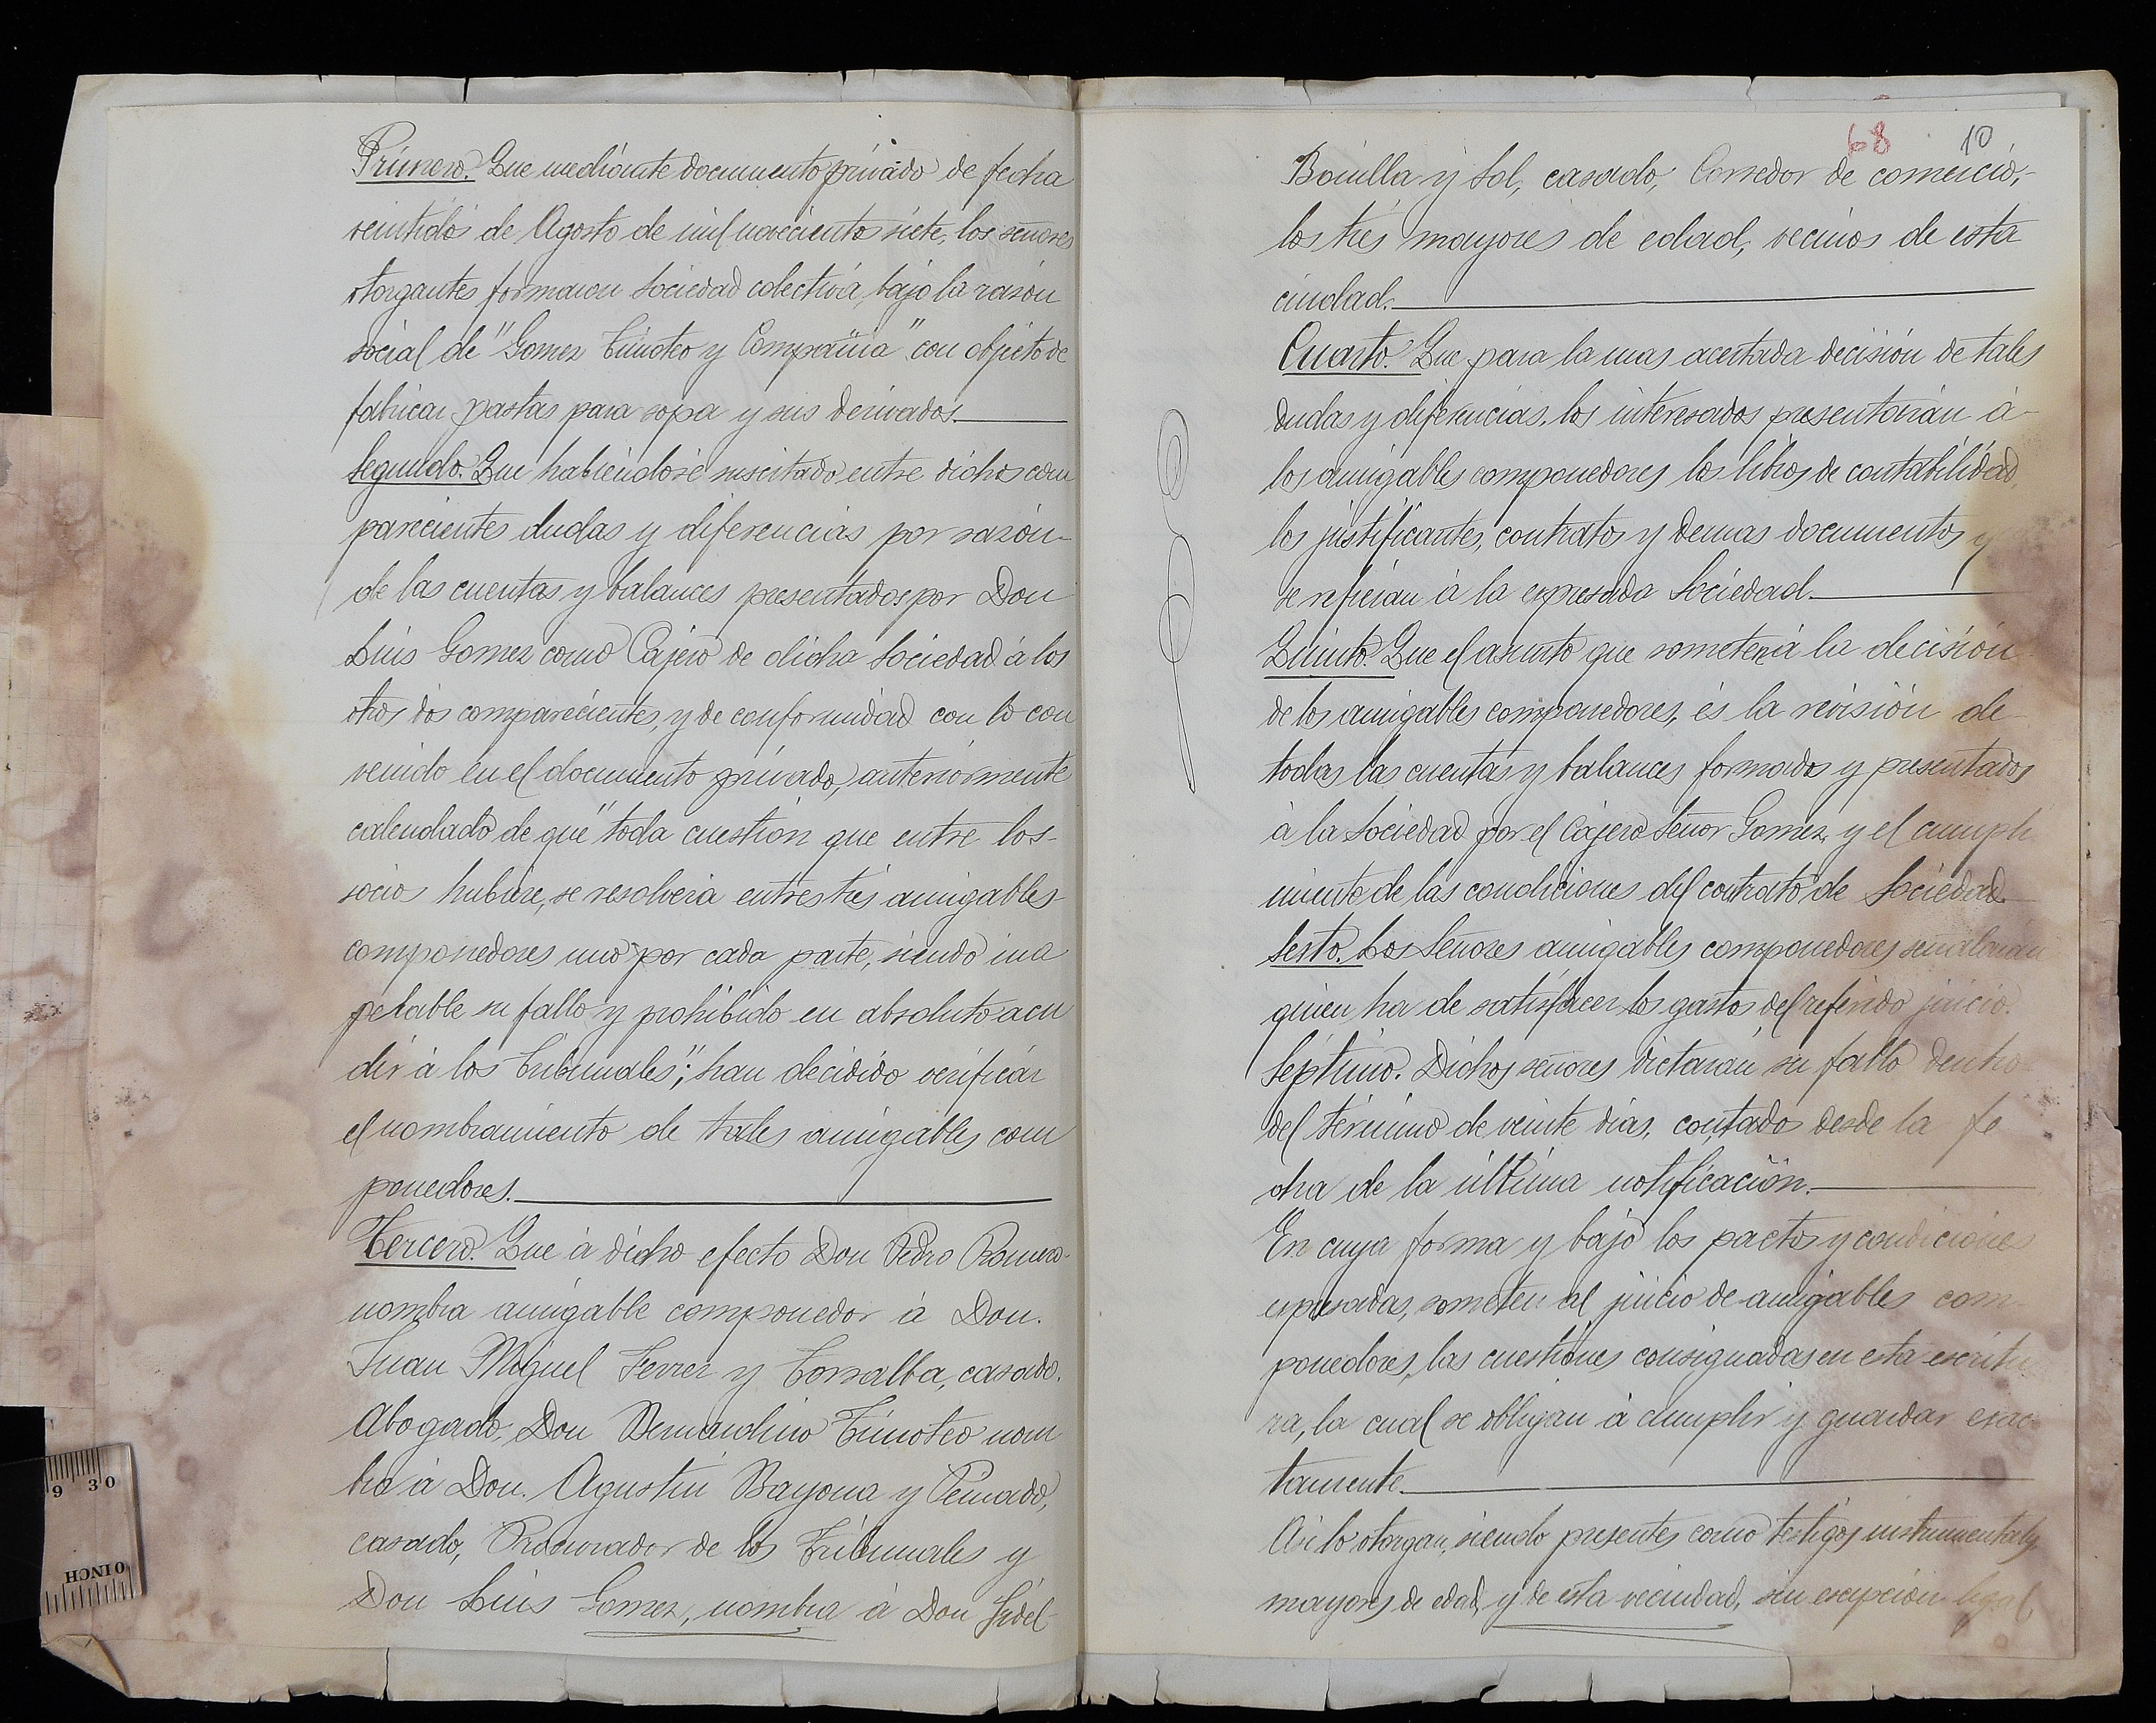 Primero. Que mediante documento privado de fecha
veintidos de Agosto de mil novecientos siete, los señores
otorgantes formaron Sociedad colectiva, bajo la razón
social de "Gomez Timoteo y Compañia" con objeto de
fabricar pastas para sopa y sus derivados.
Segundo. Que habiendose suscitado entre dichos com
parecientes dudas y diferencias por razón
de las cuentas y balances presentados por Don
Luis Gomez como Cajero de dicha Sociedad á los
otros dos comparecientes, y de conformidad con lo con
venido en el documento privado, anteriormente
calendado de que "toda cuestión que entre los
socios hubiere, se resolveria entre tres amigables
componedores uno por cada parte, siendo ina
pelable su fallo y prohibido en absoluto acu
dir á los Tribunales"; han decidido verificar
el nombramiento de tales amigables com
ponedores.
Tercero. Que á dicho efecto Don Pedro Romero
nombra amigable componedor á Don.
Juan Miguel Ferrer y Torralba, casado,
Abogado, Don Bernardino Timoteo nom
bra á Don. Agustin Bayona y Peinado,
casado, Procurador de los Tribunales y
Don Luis Gomez, nombra á Don Fidel
68 10
Bonilla y Sol, casado, Corredor de comercio,
los tres mayores de edad, vecinos de esta
ciudad.
Cuarto. Que para la mas acertada decisión de tales
dudas y diferencias, los interesados presentarán á
los amigables componedores los libros de contabilidad,
los justificantes, contratos y demas documentos q
se refieran á la expresada Sociedad.
Quinto. Que el asunto que someten á la decisión
de los amigables componedores, és la revisión de
todas las cuentas y balances formados y presentados
á la Sociedad por el Cajero Señor Gomez, y el cumpli
miento de las condiciones del contrato de Sociedad.
Sesto. Los Señores amigables componedores señalarán
quien ha de satisfacer los gastos del referido juicio.
Séptimo. Dichos señores dictarán su fallo dentro
del término de veinte dias, contados desde la fe
cha de la última notificación.
En cuya forma y bajo los pactos y condiciones
espresadas, someten al juicio de amigables com
ponedores, las cuestiones consignadas en esta escritu
ra, la cual se obligan á cumplir y guardar exac
tamente.
Asi lo otorgan, siendo presentes como testigos instrumentales
mayores de edad, y de esta vecindad, sin escepción legal,